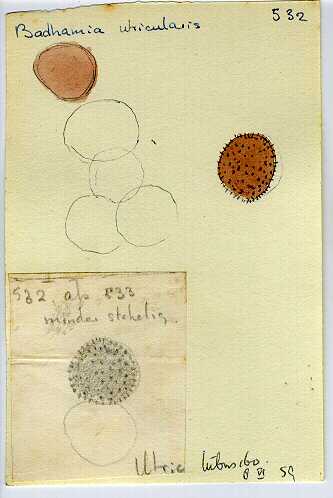 Badhamia utricularis
532
532 als 533
minder stekelig
Utric
8 VI 59